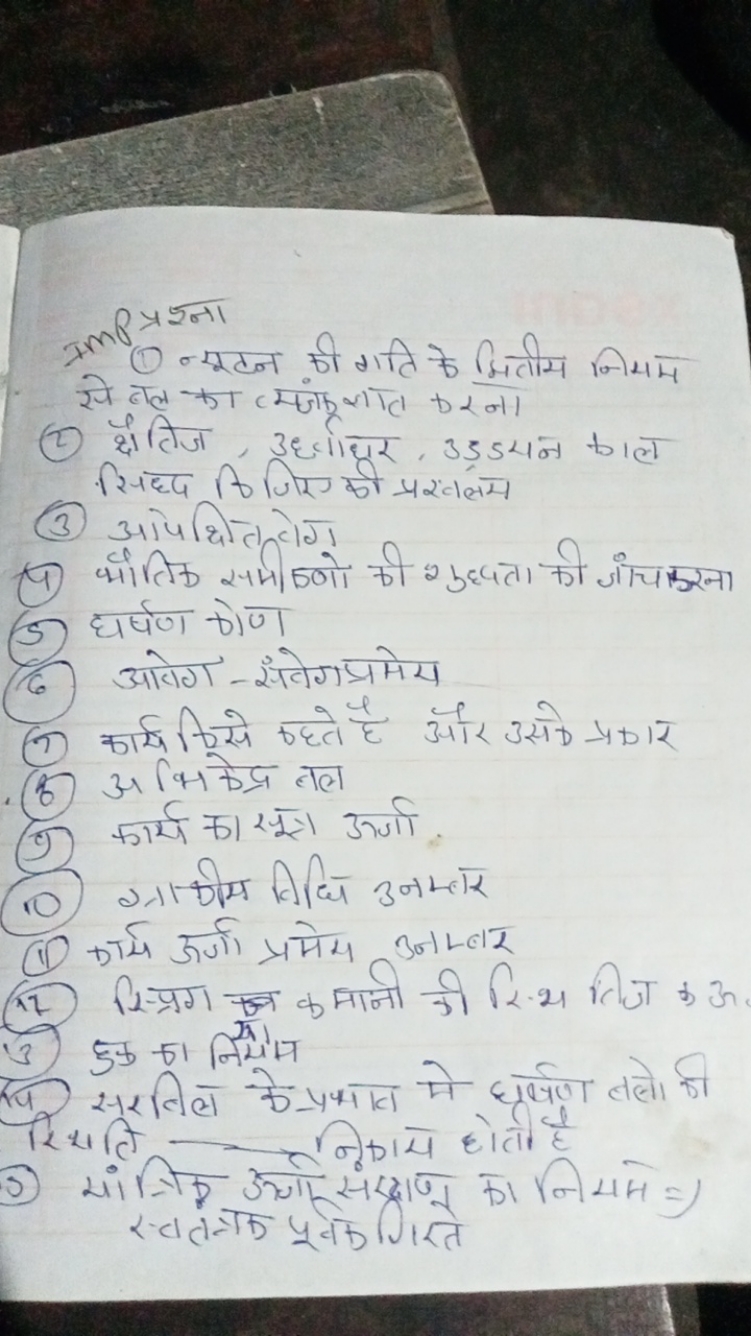 Imp प्रश्ना
① न्यूटन की गति के द्वितीय नियम
से बल का व्यंजक ज्ञात करना
② क्षैतिज, उर्ध्वाधर, उड्डयन काल
सिध्द किजिए की
③ आपेक्षित वेग
④ भौतिक समीकणो की शुध्दता की जांच करना
⑤ घर्षण कोण
⑥ आवेग - संवेग प्रमेय
⑦ कार्य किसे कहते है और उसके प्रकार
⑧ अभिकेंद्र बल
⑨ कार्य का सूत्र ऊर्जा .
⑩ ग्राफीय विधि
⑪ कार्य ऊर्जा प्रमेय
12 स्प्रिंग कमानी की स्थितिज ऊ.
13 हुक का नियम
14 के प्रभाव मे घर्षण बलो की
स्थिति निकाय होती है
5 यांत्रिक ऊर्जा संरक्षण का नियम =)
स्वतंत्रक पूर्वक गिरते